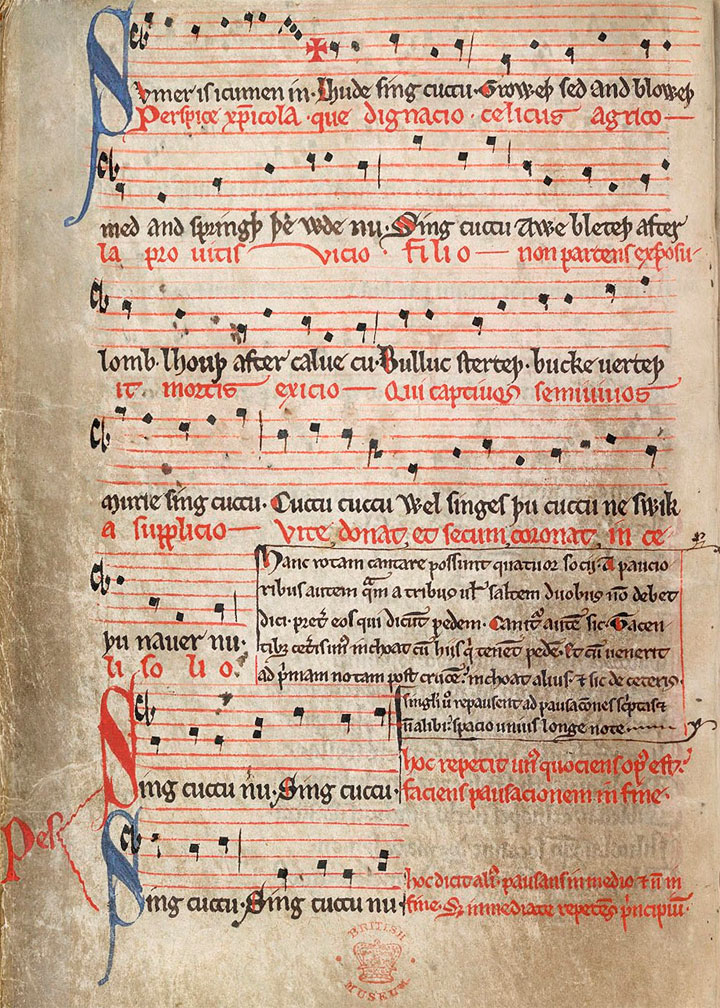 Sumer is icumen in· Lhude sing cuccu· Groweþ sed and bloweþ
Perspice xp̅icola· que dignacio· celicus agrico
med and springþ þe wde nu· Sing cuccu Awe bleteþ after
la pro uitis vicio· filio non parcens exposu
lomb· lhouþ after calue cu· Bulluc sterteþ· bucke uerteþ
it mortis exicio Qui captiuos semiuiuos
murie sing cuccu· Cuccu cuccu Wel singes þu cuccu ne swik
a supplicio Vite donat, et secum coronat, in ce
þu nauer nu·
li solio·
Hanc rotam cantare possunt quatuor socii· A paucio
ribus autem q̅m a tribus ul̅ saltem duobus n̅o debet
dici· preter eos qui dicunt pedem· Canit᷑ aute̅ sic· Tacen
tibȝ ceteris un᷒ inchoat cu̅ hiis q̅ tenent pede̅· Et cu̅ uenerit
ad p̅mam notam post cruce̅, inchoat alius· ⁊ sic de ceteris·
singli u̅o repausent ad pausac̅ones sc̅ptas ⁊
n̅ alibi· spacio unius longe note
Sing cuccu nu· Sing cuccu·
hoc repetit un᷒ quociens op᷒ est·
faciens pausacionem in fine·
Pes
Sing cuccu· Sing cuccu nu·
hoc dicit ali᷒· pausans in medio ⁊ n̅ in
fine· S; immediate repetens p̅ncipiu̅·
BRITISH
MUSEUM